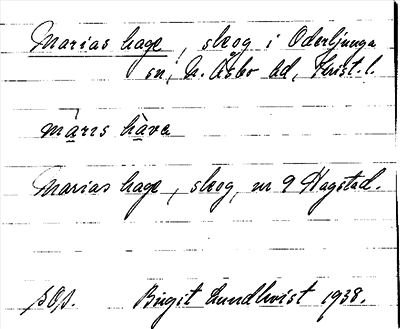 Marias hage, skog i Oderljunga
sn, N. Åsbo hd, Krist. l.
màrɪs hàva
Marias hage, skog, nr 9 Hagstad.
Birgit Lundkvist 1938.